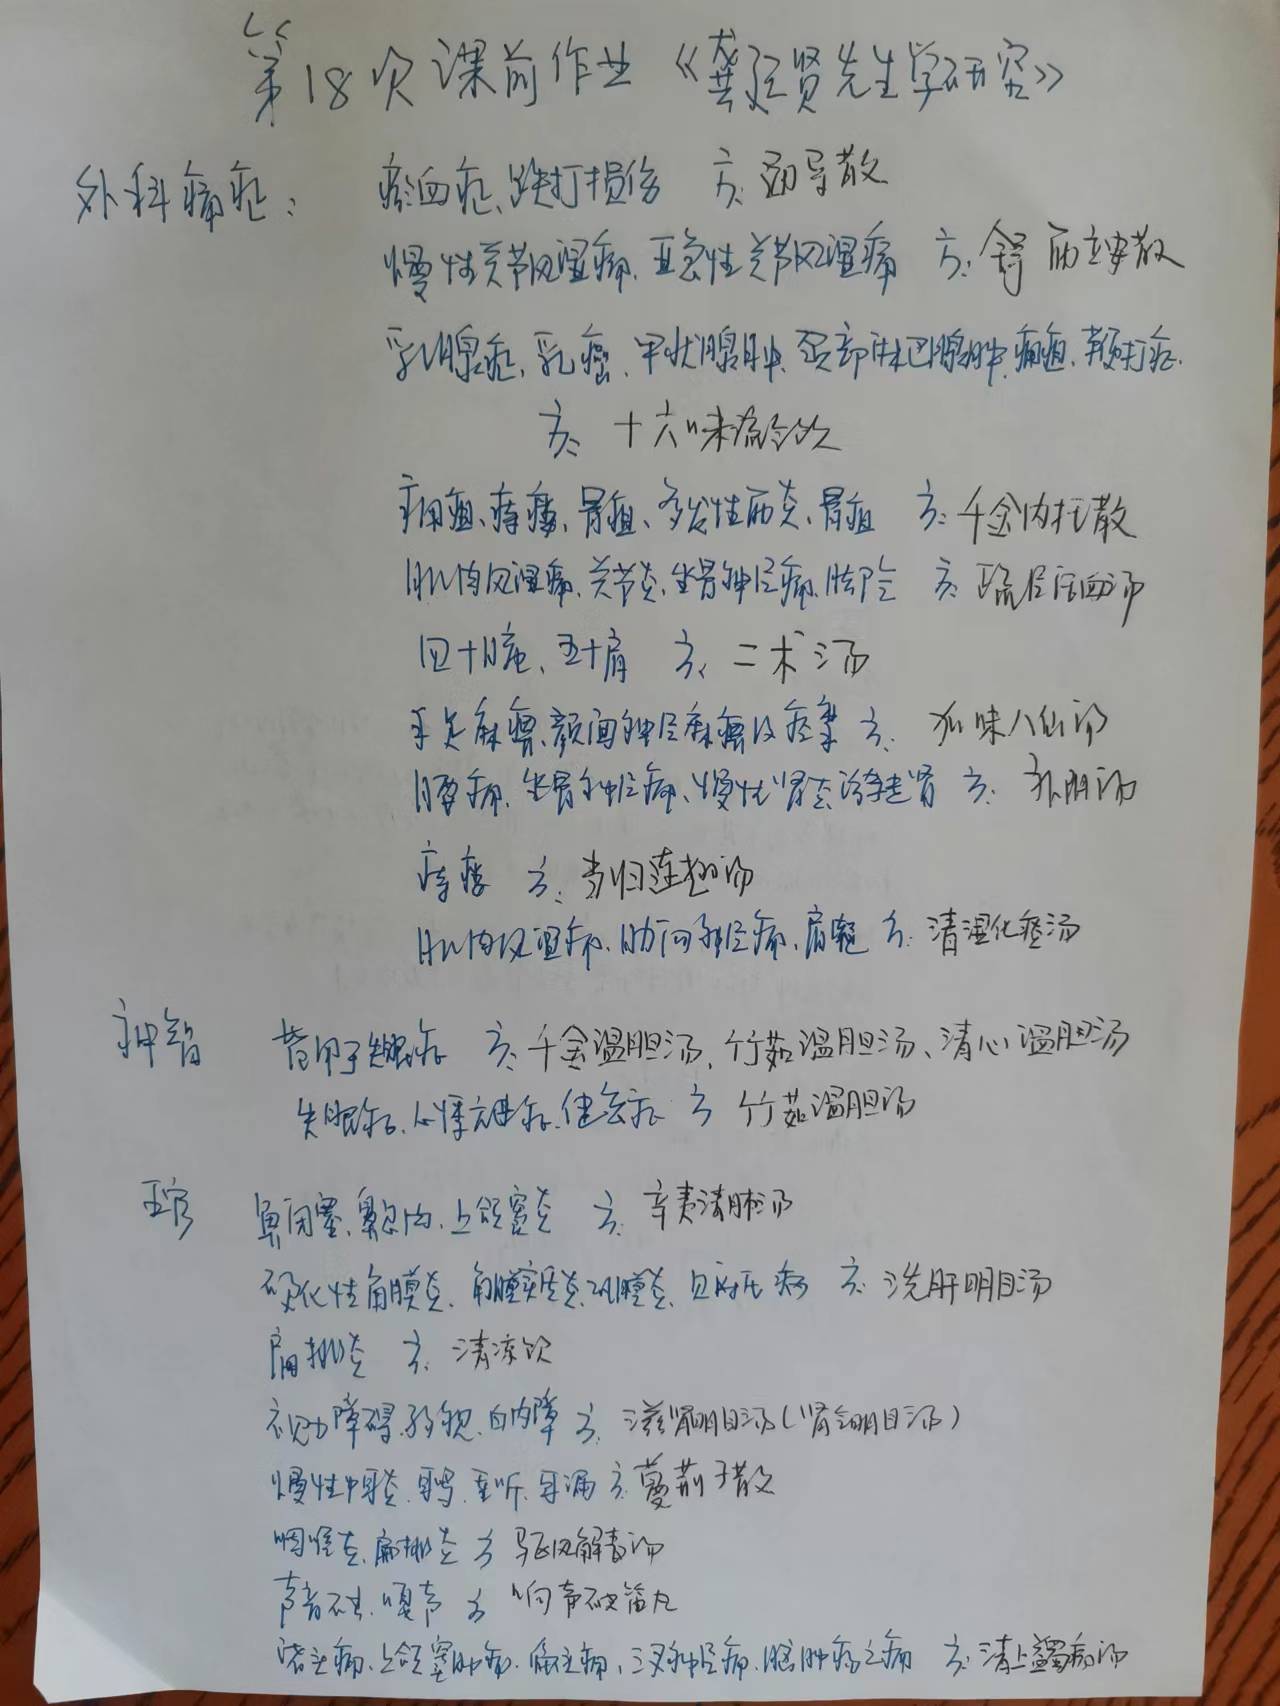 第18次课前作业《龚廷贤先生学研究》
外科痛症： 瘀血症、跌打损伤 方：导散
慢性关节风湿痛、亚急性关节风湿痛 方：舒安散
乳腺症、乳癌、甲状腺肿、颈部淋巴腺肿、打症.
方：十六味流气饮
痔瘘、骨疽、多发性炎、骨疽 方：千金内托散
肌肉风湿痛、关节炎、坐骨神经痛、方：疏经活血汤
四十腕、五十肩 方：二术汤
手足麻痹、颜面神经麻痹及痉挛 方：加味八仙汤
腰痛、坐骨神经痛、慢性肾炎、游走肾 方：补阴汤
痔瘘 方：当归连翘汤
肌肉风湿痛、肋间神经痛、肩凝 方：清湿化痰汤
神智 常用于失眠症 方：千金温胆汤、竹茹温胆汤、清心温胆汤
失眠症、心悸亢进症、健忘症 方 竹茹温胆汤
五官 鼻闭塞、鼻息肉、上颌窦炎 方：辛夷清肺汤
硬化性角膜炎、角膜实质炎、巩膜炎、方：洗肝明目汤
扁桃炎 方：清凉饮
视力障碍、弱视、白内障 方：滋肾明目汤（肾气明目汤）
慢性中耳炎、耳鸣、重听、耳漏 方：蔓荆子散
咽喉炎、扁桃炎 方 驱风解毒汤
声音不出、嘎声 方 响声破笛丸
诸头痛、上颌窦肿痛、偏头痛、三叉神经痛、脑肿疡之痛 方：清上蠲痛汤